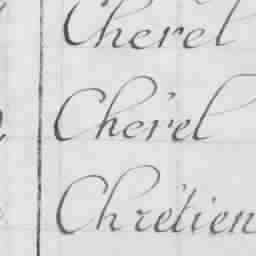 Chérel
Chérel
Chrétien